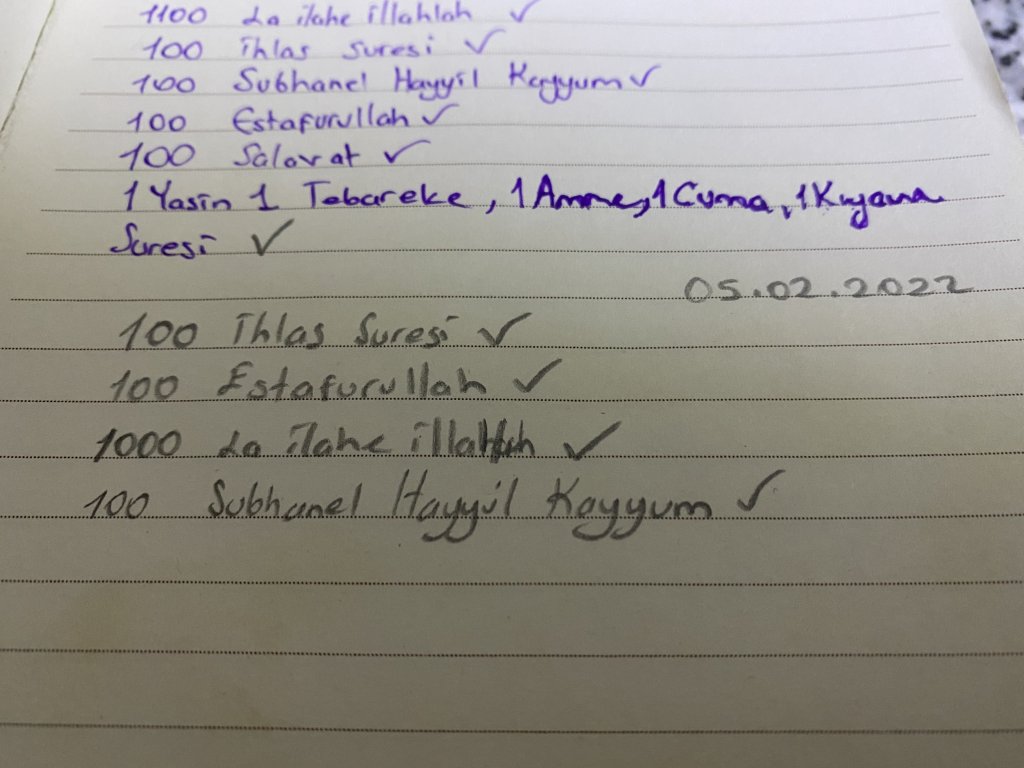 1100 La ilahe illahlah ✓
100 ihlas suresi ✓
100 Subhanel Hayyil Kayyum ✓
100 Estafurullah ✓
100 Salavat ✓
1 Yasin 1 Tebareke, 1 Amme, 1 Cuma, 1 Kıyame
Suresi ✓
05.02.2022
100 ihlas Suresi ✓
100 Estafurullah ✓
1000 La ilahe illallah ✓
100 Subhanel Hayyil Kayyum ✓